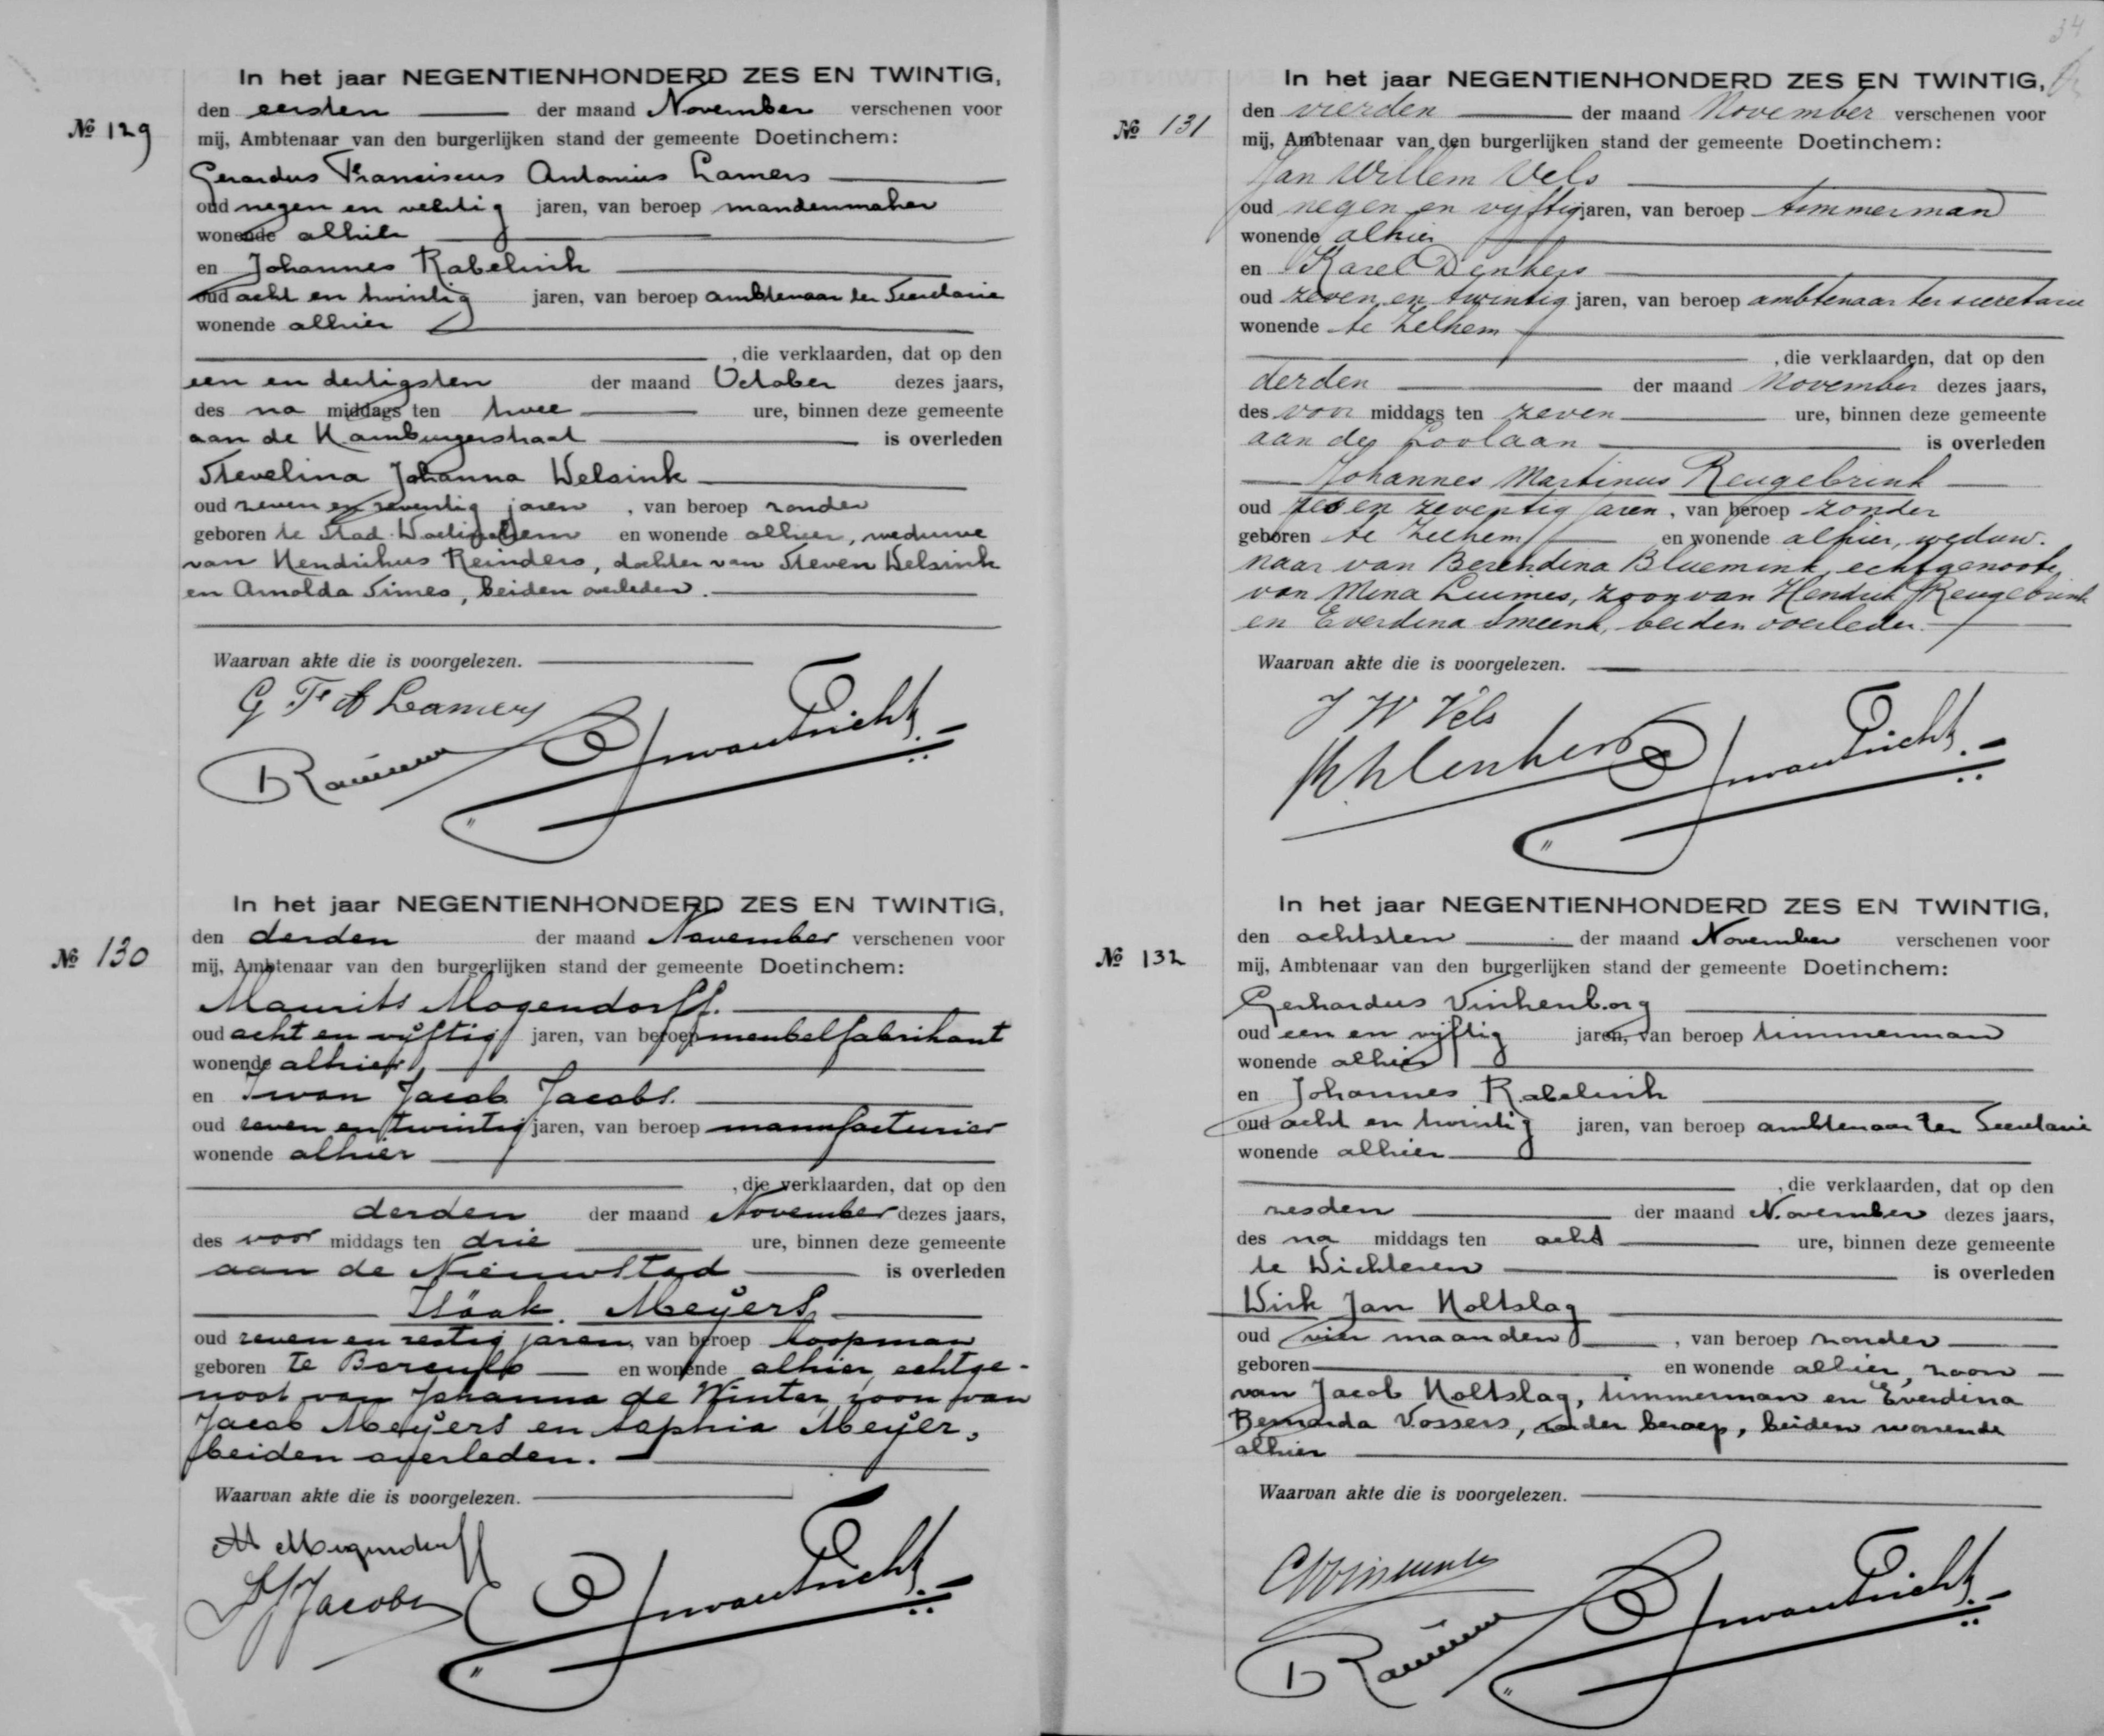 No 129
In het jaar NEGENTIENHONDERD ZES EN TWINTIG,
den eersten der maand November verschenen voor
mij, Ambtenaar van den burgerlijken stand der gemeente Doetinchem:
Gerardus Franciscus Antonius Lamers
oud negen en veertig jaren, van beroep mandenmaker
wonende alhier
en Johannes Rabelink
oud acht en twintig jaren, van beroep ambtenaar ter Secretarie
wonende alhier
, die verklaarden, dat op den
een en dertigsten der maand October dezes jaars,
des na middags ten twee ure, binnen deze gemeente
aan de Hamburgerstraat is overleden
Stevelina Johanna Welsink
oud zeven en zeventig jaren, van beroep zonder
geboren te Stad-Doetinchem en wonende alhier, weduwe
van Hendrikus Reinders, dochter van Steven Welsink
en Arnolda Simes, beiden overleden.
Waarvan akte die is voorgelezen.
G F A Lamers
No 130
In het jaar NEGENTIENHONDERD ZES EN TWINTIG,
den derden der maand November verschenen voor
mij, Ambtenaar van den burgerlijken stand der gemeente Doetinchem:
Maurits Mogendorff.
oud acht en vijftig jaren, van beroep meubelfabrikant
wonende alhier
en Iwan Jacob Jacobs.
oud zeven en twintig jaren, van beroep manufacturier
wonende alhier
, die verklaarden, dat op den
derden der maand November dezes jaars,
des voor middags ten drie ure, binnen deze gemeente
aan de Nieuwstad is overleden
Isäak Meijers
oud zeven en zestig jaren, van beroep koopman
geboren te Borculo en wonende alhier, echtge-
noot van Johanna de Winter, zoon van
Jacob Meijers en Sophia Meijer,
beiden overleden.
Waarvan akte die is voorgelezen.
M Mogendorff
Jacobs
34
No 131
In het jaar NEGENTIENHONDERD ZES EN TWINTIG,
den vierden der maand November verschenen voor
mij, Ambtenaar van den burgerlijken stand der gemeente Doetinchem:
Jan Willem Vels
oud negen en vijftig jaren, van beroep timmerman
wonende alhier
en Karel
oud zeven en twintig jaren, van beroep ambtenaar ter secretarie
wonende te Zelhem
, die verklaarden, dat op den
derden der maand November dezes jaars,
des voor middags ten zeven ure, binnen deze gemeente
aan de Loolaan is overleden
Johannes Martinus Reugebrink
oud zes en zeventig jaren, van beroep zonder
geboren te Zelhem en wonende alhier, weduw-
naar van Berendina Bluemink, echtgenoote
van Mina Luimes, zoon van Hendrik Reugebrink
en Everdina Smeenk, beiden overleden.
Waarvan akte die is voorgelezen.
J W Vels
No 132
In het jaar NEGENTIENHONDERD ZES EN TWINTIG,
den achtsten der maand November verschenen voor
mij, Ambtenaar van den burgerlijken stand der gemeente Doetinchem:
Gerhardus Vinkenborg
oud een en vijftig jaren, van beroep timmerman
wonende alhier
en Johannes Rabelink
oud acht en twintig jaren, van beroep ambtenaar ter Secretarie
wonende alhier
, die verklaarden, dat op den
zesden der maand November dezes jaars,
des na middags ten acht ure, binnen deze gemeente
te Dichteren is overleden
Dirk Jan Holtslag
oud vier maanden, van beroep zonder
geboren en wonende alhier, zoon
van Jacob Holtslag, timmerman en Everdina
Bernarda Vossers, zonder beroep, beiden wonende
alhier
Waarvan akte die is voorgelezen.